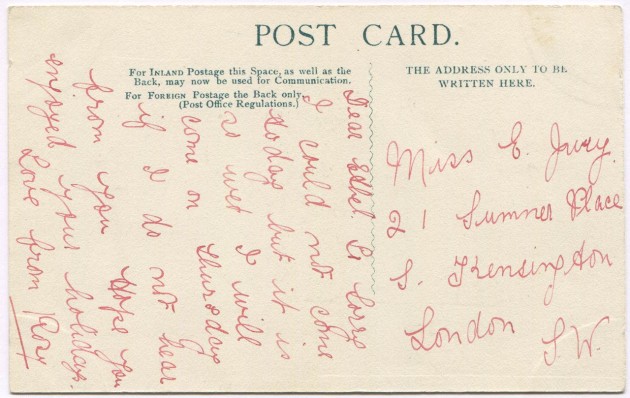 POST CARD.
For INLAND Postage this Space, as well as the
Back, may now be used for Communication.
For FOREIGN Postage the Back only.
(Post Office Regulations.)
THE ADDRESS ONLY TO BE
WRITTEN HERE.
Dear Ethel So sorry
I could not come
today but it is
so wet I will
come on Thursday
if I do not hear
from you Hope you
enjoyed your holidays.
Love from Rory
Miss E. Jury.
21 Sumner Place
S. Kensington
London S.W.